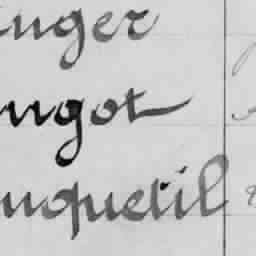 uger
ngot
nquetil